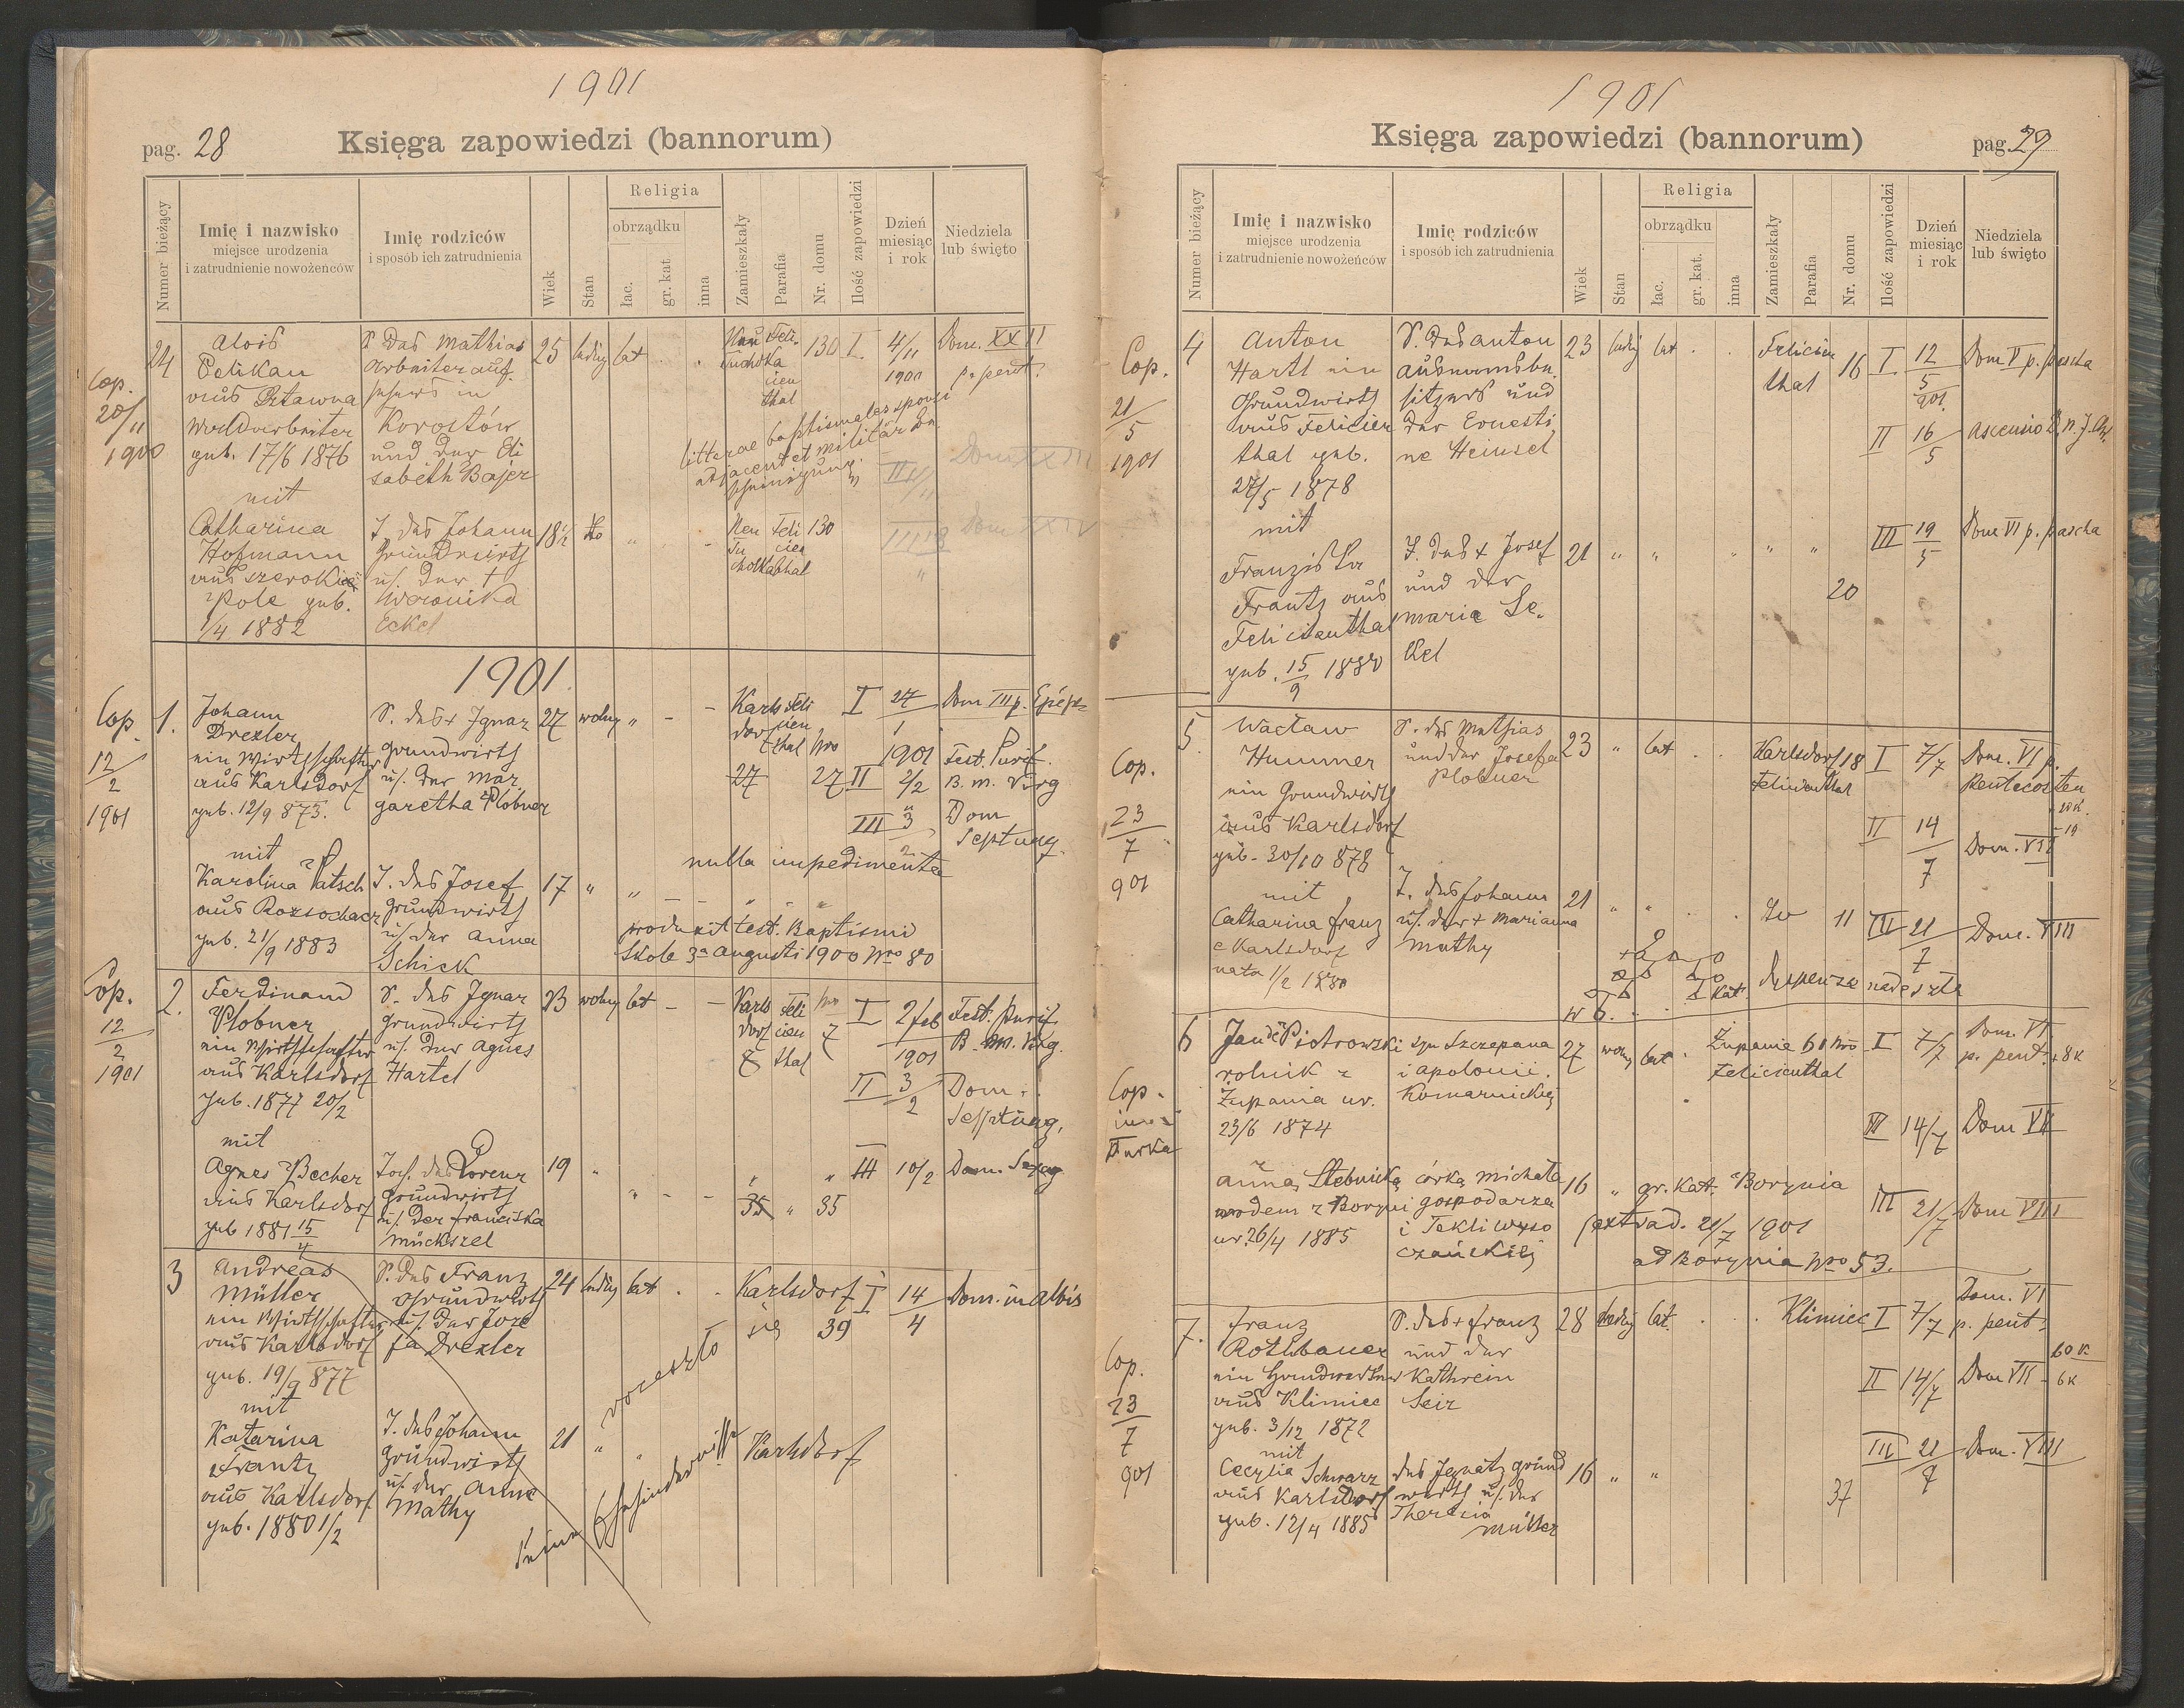 1901
pag. 28
Księga zapowiedzi (bannorum)
Numer bieżący
Imię i nazwisko
miejsce urodzenia
i zatrudnienie nowożeńców
Imię rodziców
i sposób ich zatrudnienia
Wiek
Stan
Religia
obrządku
łac.
gr. kat
inna
Zamieszkały
Parafia
Nr. domu
Ilość zapowiedzi
Dzień
miesiąc
i rok
Niedziela
lub święto
Cop.
20/11
1900
24
Alois
Pelikan
aus
geb. 17/6 1876
mit
Catharina
Hofmann
aus szerokie
Pole geb.
1/4 1882
S. des Mathias
Arbeiter auf.
Korostów
und der Eli
sabeth Bajer
T. des Johann
Grundwirth
u. der +
Weronika
Eckel
25 ledig lat
130 I. 4/11 1900 Dom. XXII
p. pent.
litterae baptismales sponsi
adjacent et militär Be
18½
Neu Feli 130
Tu cien
cholka thal
1901
Cop.
12/2
1901
1.
Johann
Drexler
ein Wirthschafter
aus Karlsdorf
geb. 12/9 873.
mit
Karolina Patsch
aus Rozsochacz
geb. 21/9 1883
S. des + Ignaz
Grundwirth
u. der Mar
garetha Plobner
T. des Josef
Grundwirth
u. der Anna
Schick
27 wolny " - -
Karls Feli
dorf cien
thal Nro
27 27
I 27/1 1901 Dom III p. Epiph
II 2/2 Fest. Purif.
B. M. Virg
III 3/2 Dom
Septuag.
nulla impedimenta
17 " "
produxit test. Baptismi
Skole 3a Augusti 1900 Nro 80
Cop.
12/2
1901
2.
Ferdinand
Plobner
ein Wirthschafter
aus Karlsdorf
geb. 1877 20/2
mit
Agnes Becher
aus Karlsdorf
geb 1881 15/4
S. des Ignaz
Grundwirth
u. der Agnes
Hartel
des Lorenz
Grundwirth
u. der Franciska
Mückszel
23 wolny lat - -
Karls Feli Nro
dorf cien 7
7 thal
I 2 feb 1901 Fest. Purif.
B. M. Virg.
II 3/2 Dom.
Septuag.
19 " " - - " " III 10/2 Dom. Sexag
35 " 35
3
Andreas
Müller
ein Wirthschafter
aus Karlsdorf
geb. 19/9 877
mit
Katarina
Frantz
aus Karlsdorf
geb. 1880 1/2
S. des Franz
Grundwirth
u. der Joze
fa Drexler
T. des Johann
Grundwirth
u. der Anna
Mathy
24 ledig lat . . Karlsdorf I 14/4 Dom. in albis
39
się
rozeszło
21 " " Karlsdorf
1901
Księga zapowiedzi (bannorum)
pag. 29
Numer bieżący
Imię i nazwisko
miejsce urodzenia
i zatrudnienie nowożeńców
Imię rodziców
i sposób ich zatrudnienia
Wiek
Stan
Religia
obrządku
łac.
gr. kat.
inna
Zamieszkały
Parafia
Nr. domu
Ilość zapowiedzi
Dzień
miesiąc
i rok
Niedziela
lub święto
Cop.
21/5
1901
4
Anton
Hartl ein
Grundwirth
aus Felicien
thal geb.
27/5 1878
mit
Franziska
Frantz aus
Felicienthal
geb. 15/9 1880
S. des Anton
Ausnahmsbe.
sitzers und
der Ernesti
ne Heinsel
T. des + Josef
und der
Maria Se-
kel
23 ledig lat . . Felicien
thal
16 I. 12/5 901. Dom V p. pascha
II 16/5 Ascensio D. n. J. Chr.
21 " " " " " III 19/5 Dom VI p. pascha
20
Cop.
23/7
901
5.
Wacław
Hummer
ein Grundwirth
aus Karlsdorf
geb. 30/10 878
mit
Catharina Franz
e Karlsdorf
nata 1/2 1880
S. des Mathias
und der Josefa
Plobner
T. des Johann
u. der + Marianna
Mathy
23 " lat . . Karlsdorf 18
Felicienthal
I 7/7 Dom. VI p.
Pentecosten
II 14/7 Dom. VII
21 " " . . 11 III 21/7 Dom. VIII
Dyspenza nadeszła
Cop.
Turka
6
Jan Piotrowski
rolnik z
Żupania ur.
23/6 1874
z
Anna Stebnicka
rodem z Boryni
ur. 26/4 1885
syn Szczepana
i Apolonii
Komarnickiej
córka Michała
gospodarza
i Tekli Wyso
czańskiej
27 wolny lat . Żupanie 61 Nro
Felicienthal
I 7/7 Dom. VI
p. pent. 8 K
II 14/7 Dom VII
16 " gr. Kat. Borynia
III 21/7 Dom VIII
extrad. 21/7 1901
ad Borynia Nro 53.
Cop.
23/7
901
7.
Franz
Rothbauer
aus Klimiec
geb. 3/12 1872
mit
Cecylia Schwarz
aus Karlsdorf
geb. 12/4 1885
S. des + Franz
und der
Kathrein
Seir
des Ignatz Grund
wirth u. der
Theresia
Müller
28 ledig lat. . . Klimiec I 7/7 Dom. VI
p. pent.
60 K
II 14/7 Dom VII - 6 K
III 21/7 Dom. VIII
16 " "
37